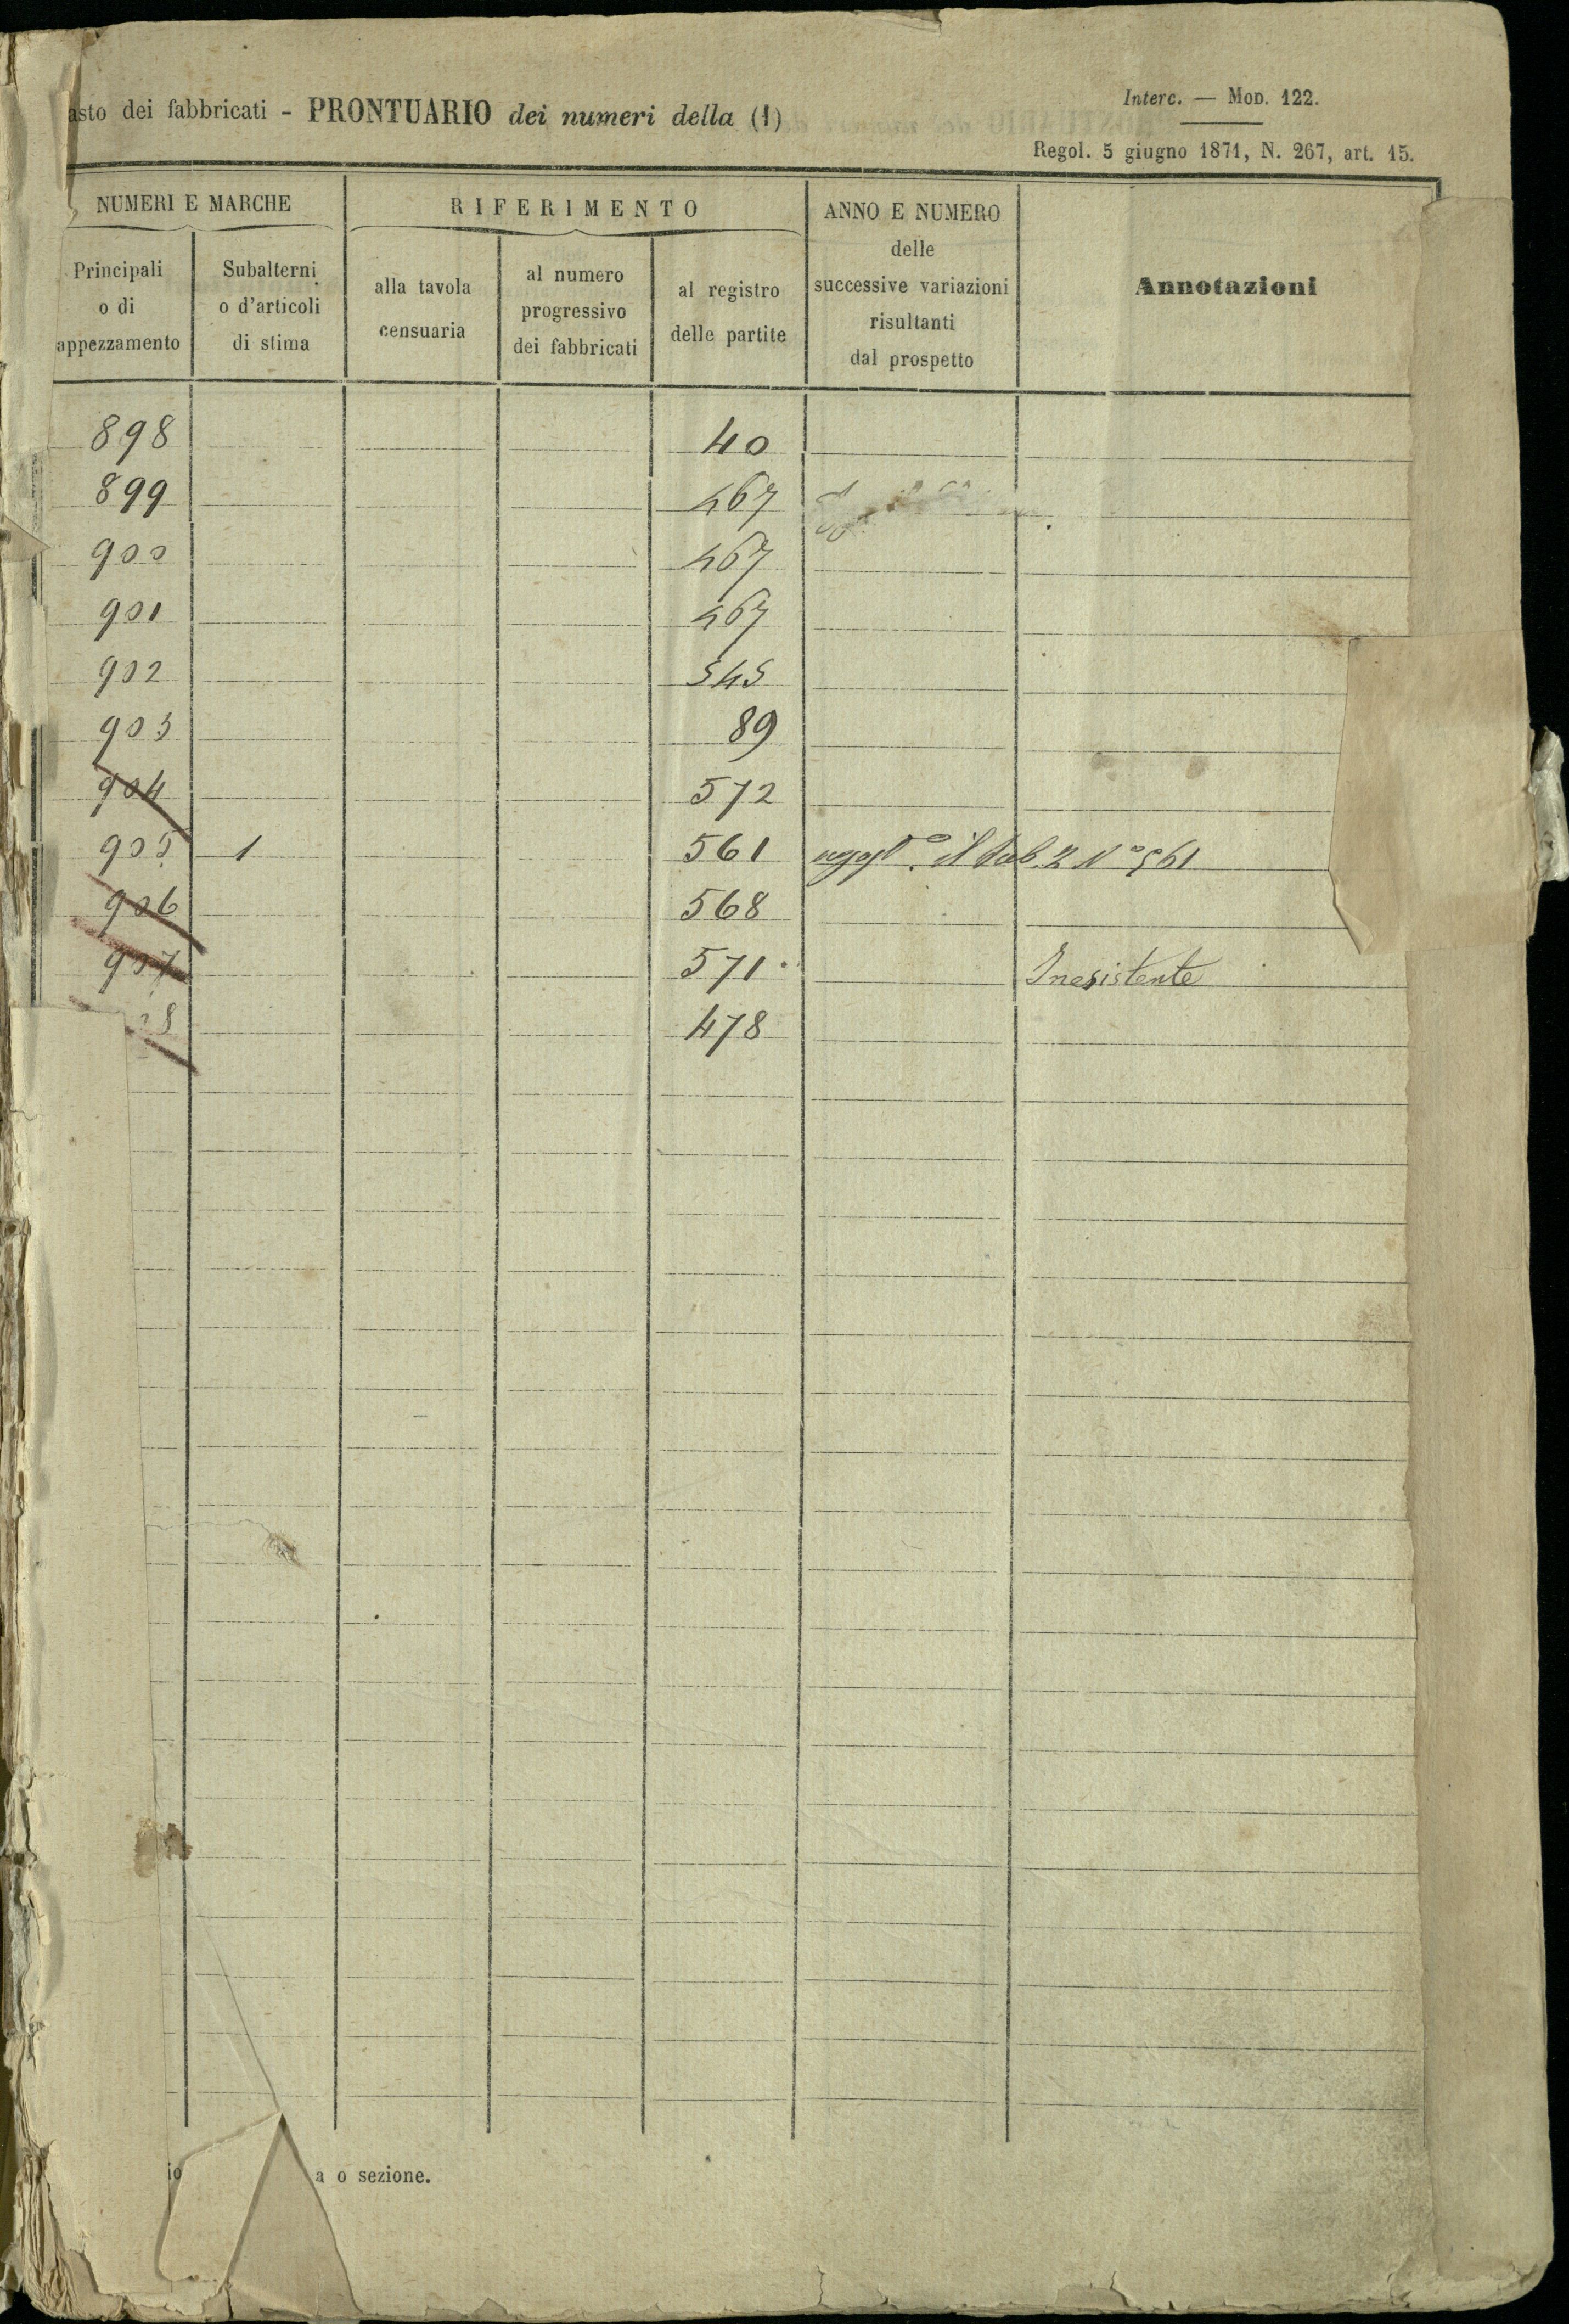 asto dei fabbricati - PRONTUARIO dei numeri della (1)
Interc. — Mod. 122.
Regol. 5 giugno 1871, N. 267, art. 15.
NUMERI E MARCHE RIFERIMENTO ANNO E NUMERO delle successive variazioni risultanti dal prospetto Annotazioni
Principali o di appezzamento Subalterni o d'articoli di stima alla tavola censuaria al numero progressivo dei fabbricati al registro delle partite
898 40
899 467
900 467
901 467
902 545
903 89
904 572
905 1 561 il sub. 2 N° 561
906 568
907 571 Inesistente
8 478
io a o sezione.